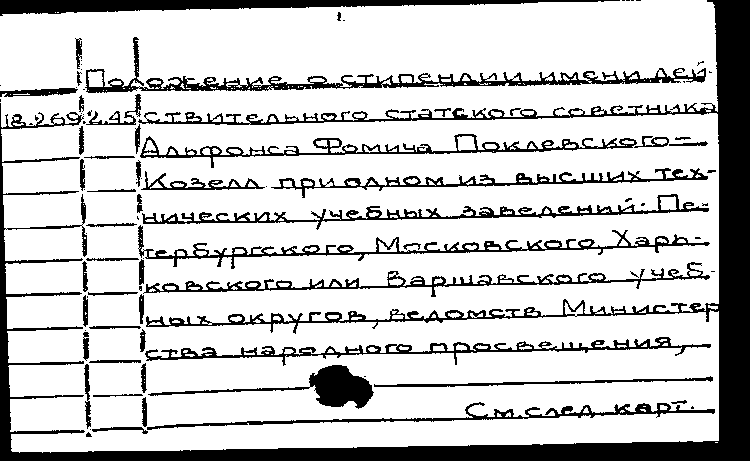 1.
Положение о стипендии имени дей-
18.269 2.45 ствительного статского советника
Альфонса Фомича Поклевского-
Козелл при одном из высших тех-
нических учебных заведений: Пе-
тербургского, Московского, Харь-
ковского или Варшавского учеб-
ных округов, ведомств Министер
ства народного просвещения,
См. след. карт.